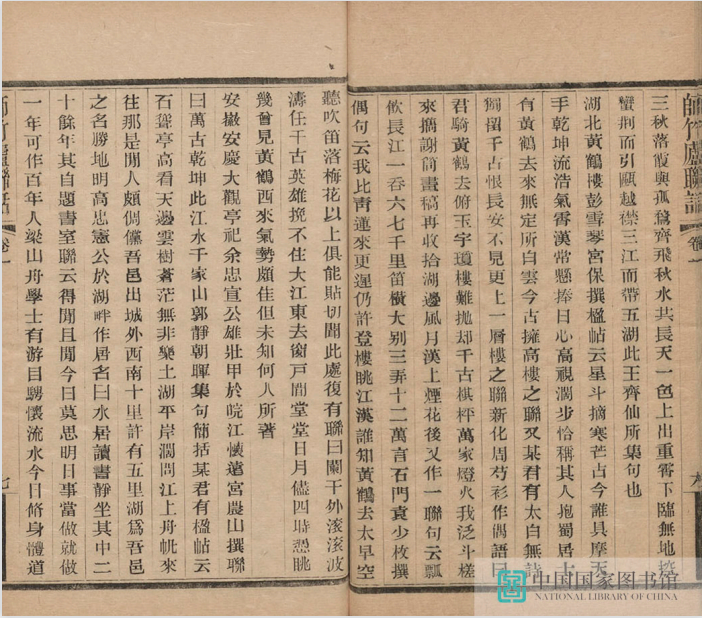 師竹廬聯話 卷一 六
三秋落霞與孤鶩齊飛秋水共長天一色上出重霄下臨無地控
蠻荊而引甌越襟三江而帶五湖此王齊仙所集句也
湖北黃鶴樓彭雪琴宮保撰楹帖云星斗摘寒芒古今誰具摩天
手乾坤流浩氣霄漢常懸捧日心高視濶步恰稱其人抱蜀居士
有黃鶴去來無定所白雲今古擁高樓之聯又某君有太白無詩
獨留千古恨長安不見更上一層樓之聯新化周芍衫作偶語曰
君騎黃鶴去俯玉宇瓊樓難抛却千古棋枰萬家燈火我泛斗槎
來擕謝筒畫稿再收拾湖邊風月漢上煙花後又作一聯句云瓢
飲長江一吞六七千里笛橫大别三弄十二萬言石門袁少枚撰
偶句云我比靑蓮來更遲仍許登樓眺江漢誰知黃鶴去太早空
聽吹笛落梅花以上俱能貼切聞此處復有聯曰闌干外滾滾波
濤任千古英雄挽不住大江東去窗戸間堂堂日月儘四時憑眺
幾曾見黃鶴西來氣勢頗佳但未知何人所著
安徽安慶大觀亭祀余忠宣公雄壯甲於皖江懷遠宮農山撰聯
曰萬古乾坤此江水千家山郭靜朝暉集句簡括某君有楹帖云
石聳亭高看天邊雲樹蒼茫無非樂土湖平岸濶問江上舟帆來
往那是閒人頗倜儻吾邑出城外西南十里許有五里湖爲吾邑
之名勝地明高忠憲公於湖畔作居名曰水居讀書靜坐其中二
十餘年其自題書室聯云得閒且閒今日莫思明日事當做就做
一年可作百年人梁山舟學士有游目騁懷流水今日修身體道
師竹廬聯話 卷一 七
中国国家图书馆
NATIONAL LIBRARY OF CHINA